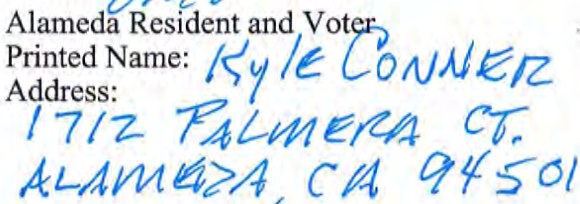 Alameda Resident and Voter
Printed Name: Kyle CONNER
Address:
1712 PALMERA CT.
ALAMEDA, CA 94501